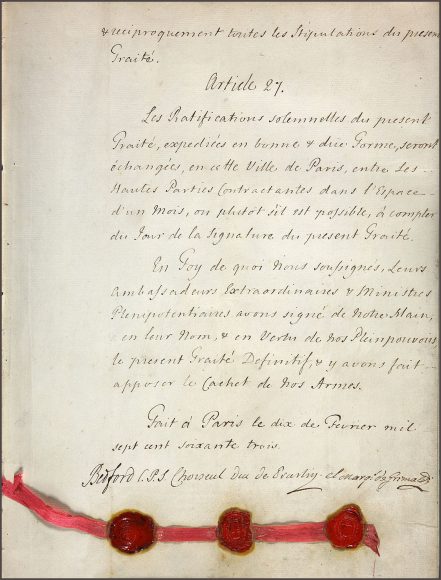 & réciproquement toutes les Stipulations du présent
Traité.
Article 27.
Les Ratifications solemnelles du présent
Traité, expediées en bonne & due Forme, seront
échangées, en cette Ville de Paris, entre Les
Hautes Parties Contractantes dans l'Espace
d'un Mois, ou plutôt s'il est possible, à compter
du Jour de la Signature du présent Traité.
En Foy de quoi Nous soussignés, Leurs
Ambassadeurs Extraordinaires & Ministres
Plenipotentiaires avons signé de Notre Main,
en leur Nom, & en Vertu de nos Pleinpouvoirs,
le présent Traité Definitif, & y avons fait
apposer le Cachet de nos Armes.
Fait à Paris le dix de Fevrier mil
sept cent soixante trois.
Bedford C.P.S. Choiseul Duc de Praslin. el Marq. de Grimaldi